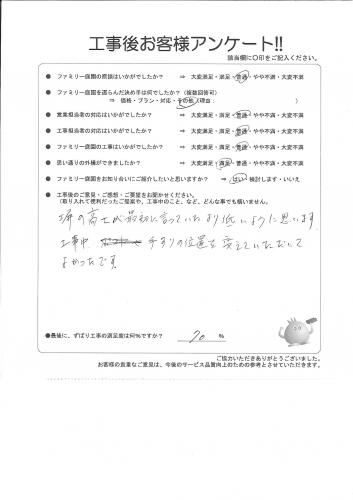 工事後お客様アンケート!!
該当欄に○印をご記入ください。
● ファミリー庭園の見積はいかがでしたか？ ⇒ 大変満足・満足・普通・やや不満・大変不満
● ファミリー庭園を選らんだ決め手は何でしたか？（複数回答可）
⇒ 価格・プラン・対応・その他（理由： ）
● 営業担当者の対応はいかがでしたか？ ⇒ 大変満足・満足・普通・やや不満・大変不満
● 工事担当者の対応はいかがでしたか？ ⇒ 大変満足・満足・普通・やや不満・大変不満
● ファミリー庭園の工事はいかがでしたか？ ⇒ 大変満足・満足・普通・やや不満・大変不満
● 思い通りの外構ができましたか？ ⇒ 大変満足・満足・普通・やや不満・大変不満
● ファミリー庭園をお知り合いにご紹介したいと思いますか？ ⇒ はい・検討します・いいえ
● 工事後のご意見・ご感想・ご要望をお聞かせください。
（取り入れて便利だったご提案や、工事中のこと、など、どんな事でも構いません。
塀の高さが最初に言っていたより低いように思います
工事中 手すりの位置を変えていただいて
よかったです。
●最後に、ずばり工事の満足度は何％ですか？ 70 %
ご協力いただきありがとうございました。
お客様の貴重なご意見は、今後のサービス品質向上のための参考とさせていただきます。